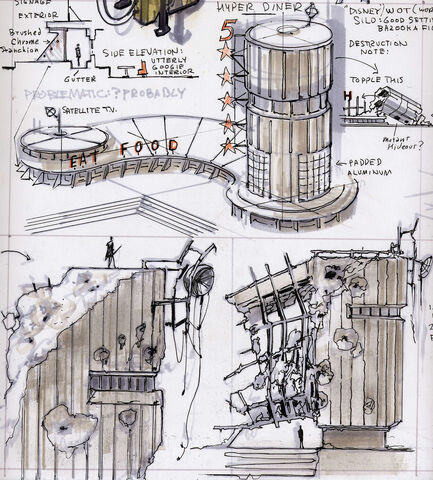 SIGNAGE
EXTERIOR
Brushed
Chrome
Stanchion
SIDE ELEVATION:
UTTERLY
GOOGIE
INTERIOR
GUTTER
PROBLEMATIC:? PROBABLY
SATELLITE T.V.
EAT FOOD
HYPER DINER
5
DISNEY/WOT
SILO: GOOD SETTI
BAZOOKA FI
DESTRUCTION
NOTE:
TOPPLE THIS
Mutant
Hideout?
PADDED
ALUMINUM